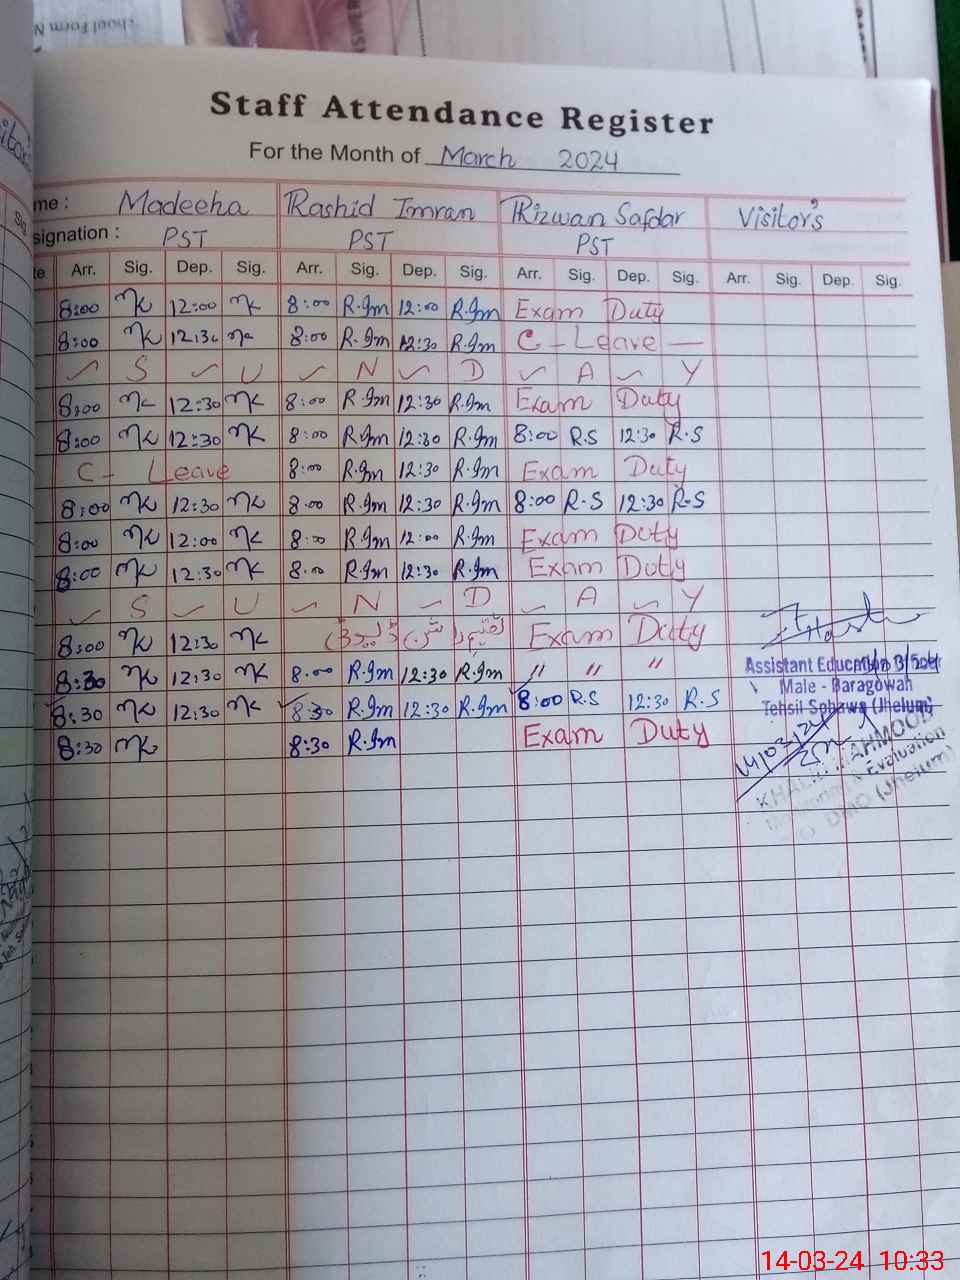 Staff Attendance Register
For the Month of March 2024
me : Madeeha Rashid Imran Rizwan Safdar Visitor's
signation : PST PST PST
te Arr. Sig. Dep. Sig. Arr. Sig. Dep. Sig. Arr. Sig. Dep. Sig. Arr. Sig. Dep. Sig.
8:00 12:00 8:00 R.Im 12:00 R.Im Exam Duty
8:00 12:30 8:00 R.Im 12:30 R.Im C - Leave —
S U N D A Y
8:00 12:30 8:00 R.Im 12:30 R.Im Exam Duty
8:00 12:30 8:00 R.Im 12:30 R.Im 8:00 R.S 12:30 R.S
C - Leave 8:00 R.Im 12:30 R.Im Exam Duty
8:00 12:30 8:00 R.Im 12:30 R.Im 8:00 R.S 12:30 R.S
8:00 12:00 8:00 R.Im 12:00 R.Im Exam Duty
8:00 12:30 8:00 R.Im 12:30 R.Im Exam Duty
S U N D A Y
8:00 12:30 ڈیوٹی Exam Duty
8:30 12:30 8:00 R.Im 12:30 R.Im " " "
8:30 12:30 8:30 R.Im 12:30 R.Im 8:00 R.S 12:30 R.S
8:30 8:30 R.Im Exam Duty
Assistant Education
Male - Baragowah
Tehsil Sohawa (Jhelum)
14/03/24
MAHMOOD
Evaluation
DMO (Jhelum)
14-03-24 10:33